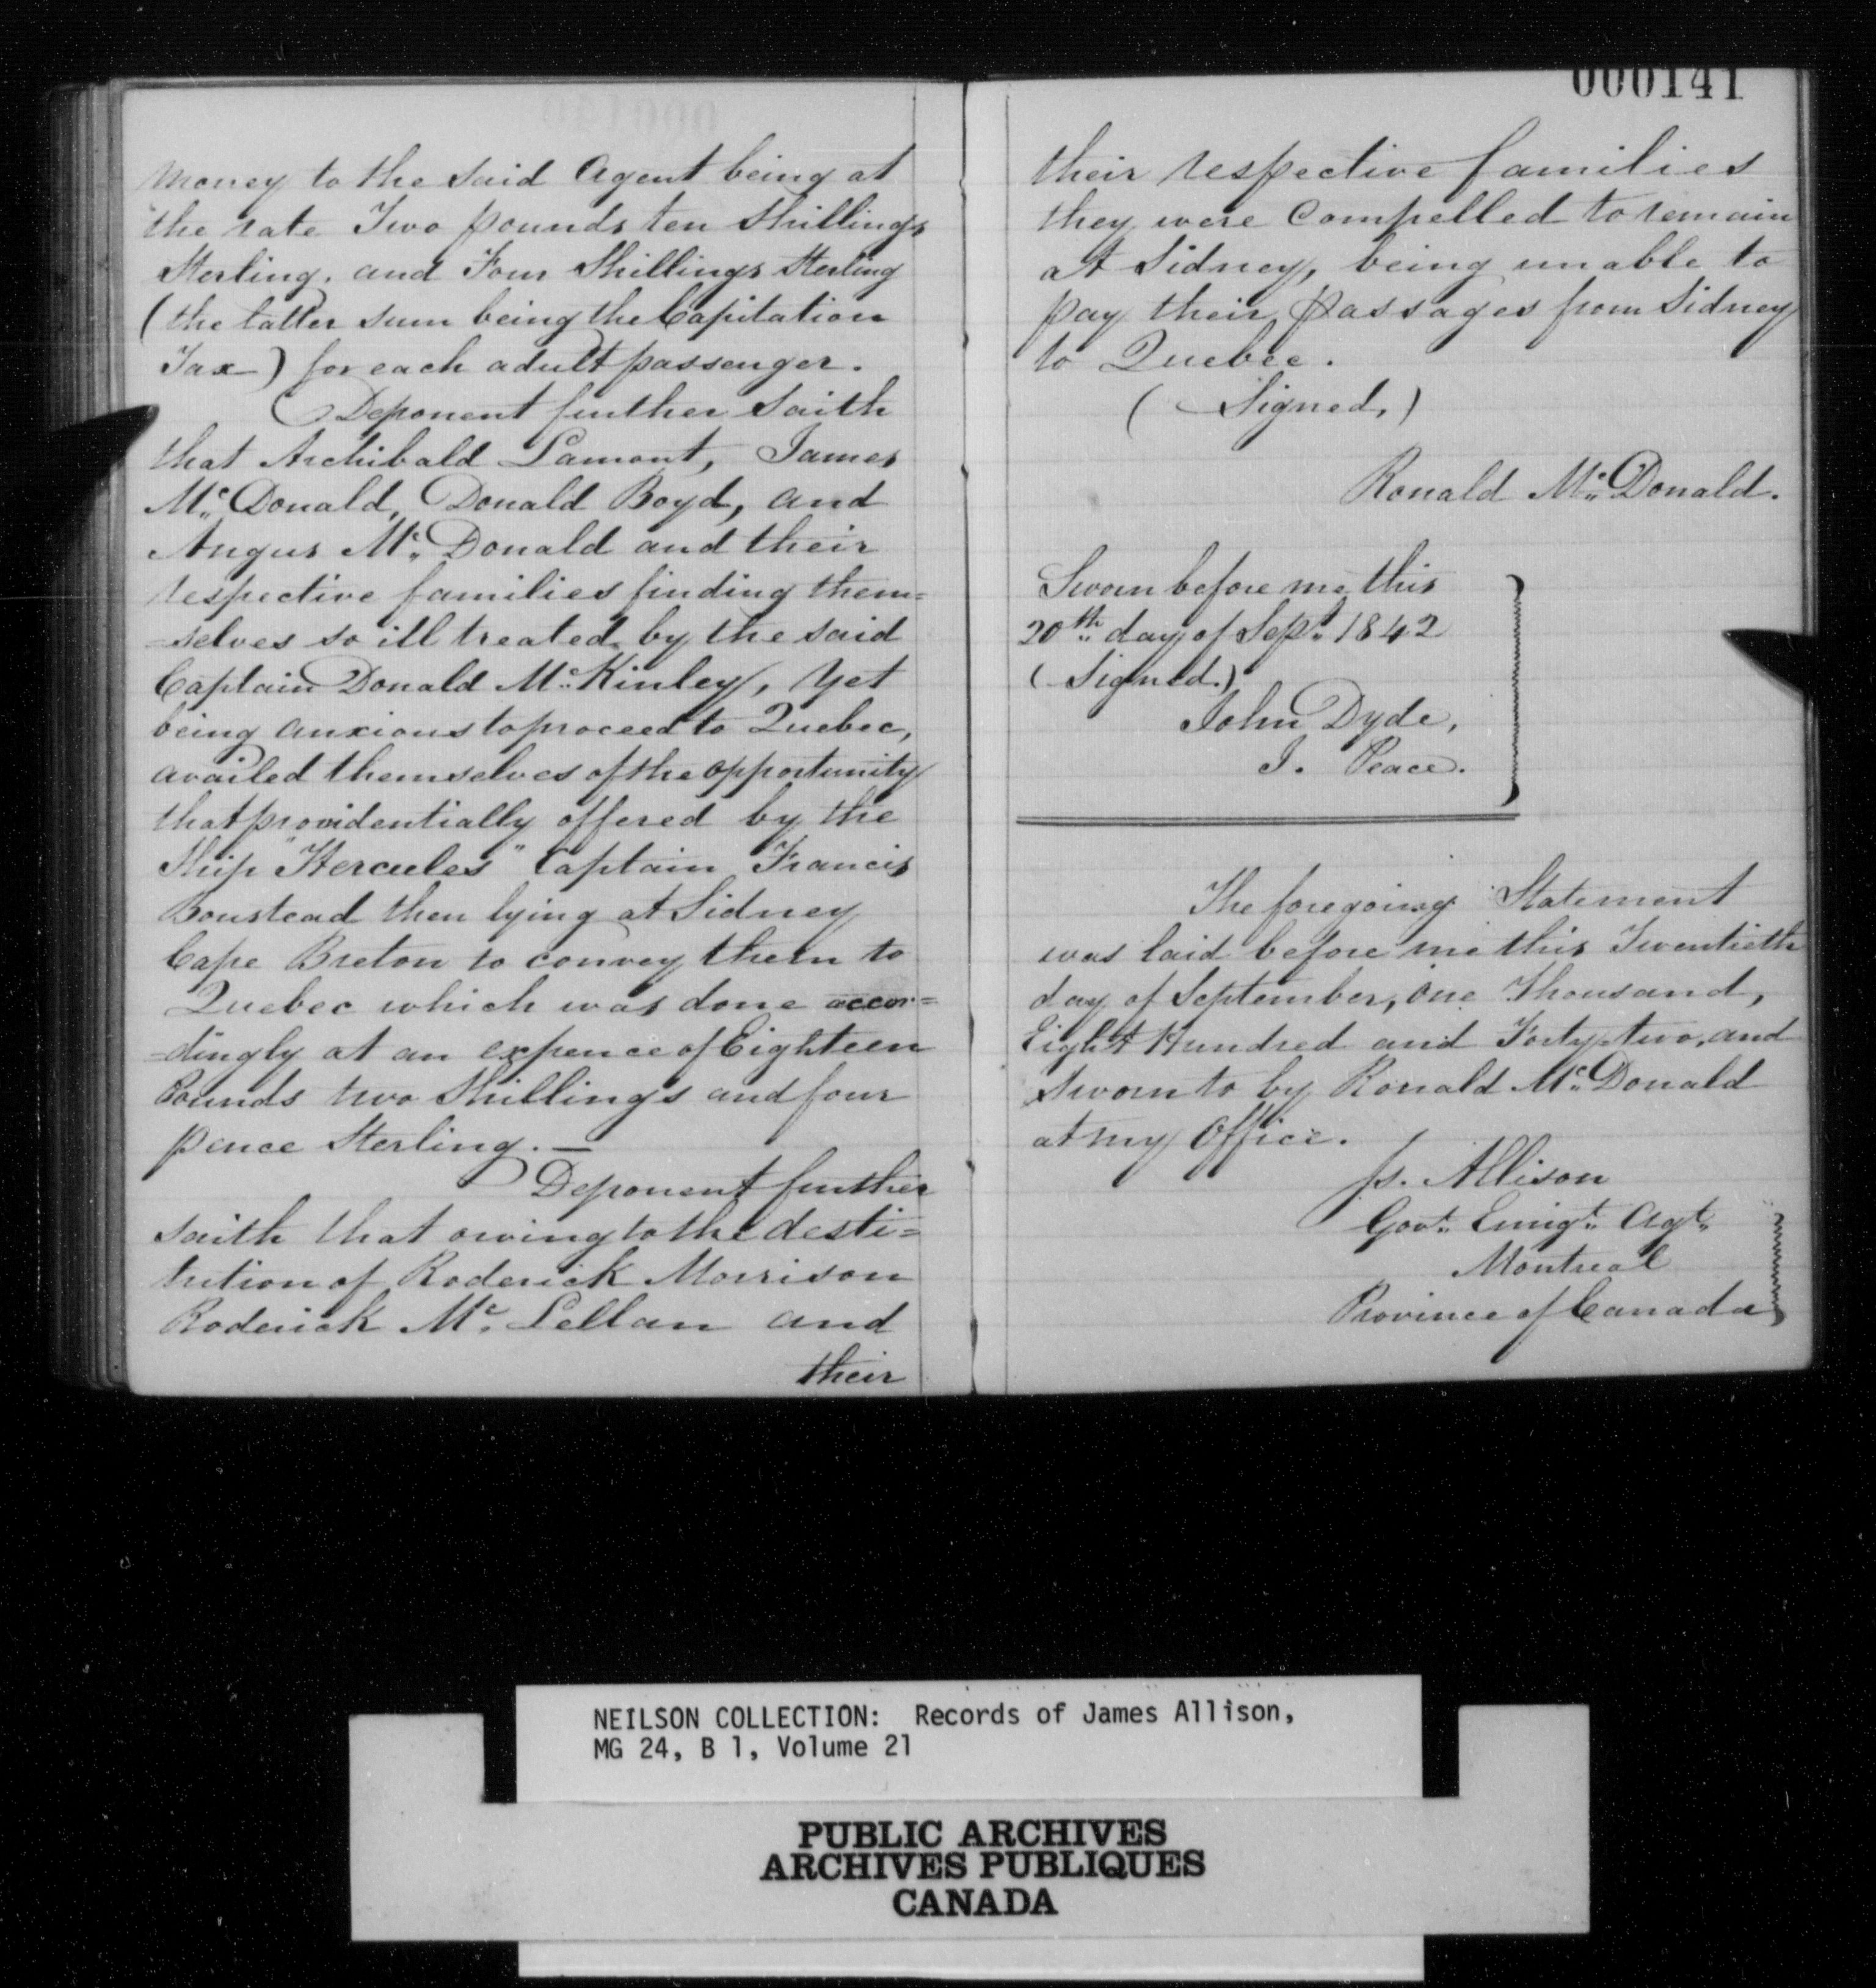 money to the said Agent being at
the rate Two pounds ten Shillings
Sterling. and Four Shillings Sterling
(the latter sum being the Capitation
Tax) for each adult passenger.
Deponent further Saith
that Archibald Lamont, James
Mc. Donald, Donald Boyd, and
Angus Mc. Donald and their
respective families finding them=
=selves so ill treated by the said
Captain Donald Mc. Kinley, yet
being anxious to proceed to Quebec,
availed themselves of the opportunity
that providentially offered by the
Ship "Hercules" Captain Francis
Boustead then lying at Sidney
Cape Breton to convey them to
Quebec which was done accor=
=dingly at an expence of Eighteen
Pounds two Shillings and four
pence Sterling. —
Deponent further
saith that owing to the desti=
tution of Roderick Morrison
Roderick Mc. Lellan and
their
000141
their respective families
they were Compelled to remain
at Sidney, being unable to
pay their passages from Sidney
to Quebec.
(Signed,)
Ronald Mc. Donald.
Sworn before me this
20th day of Sept. 1842
(Signed.)
John Dyde,
J. Peace.
The foregoing Statement
was laid before me this Twentieth
day of September, One Thousand,
Eight Hundred and Forty two, and
Sworn to by Ronald Mc. Donald
at my Office.
Js. Allison
Govt. Emigt. Agt.
Montreal
Province of Canada
NEILSON COLLECTION: Records of James Allison,
MG 24, B 1, Volume 21
PUBLIC ARCHIVES
ARCHIVES PUBLIQUES
CANADA